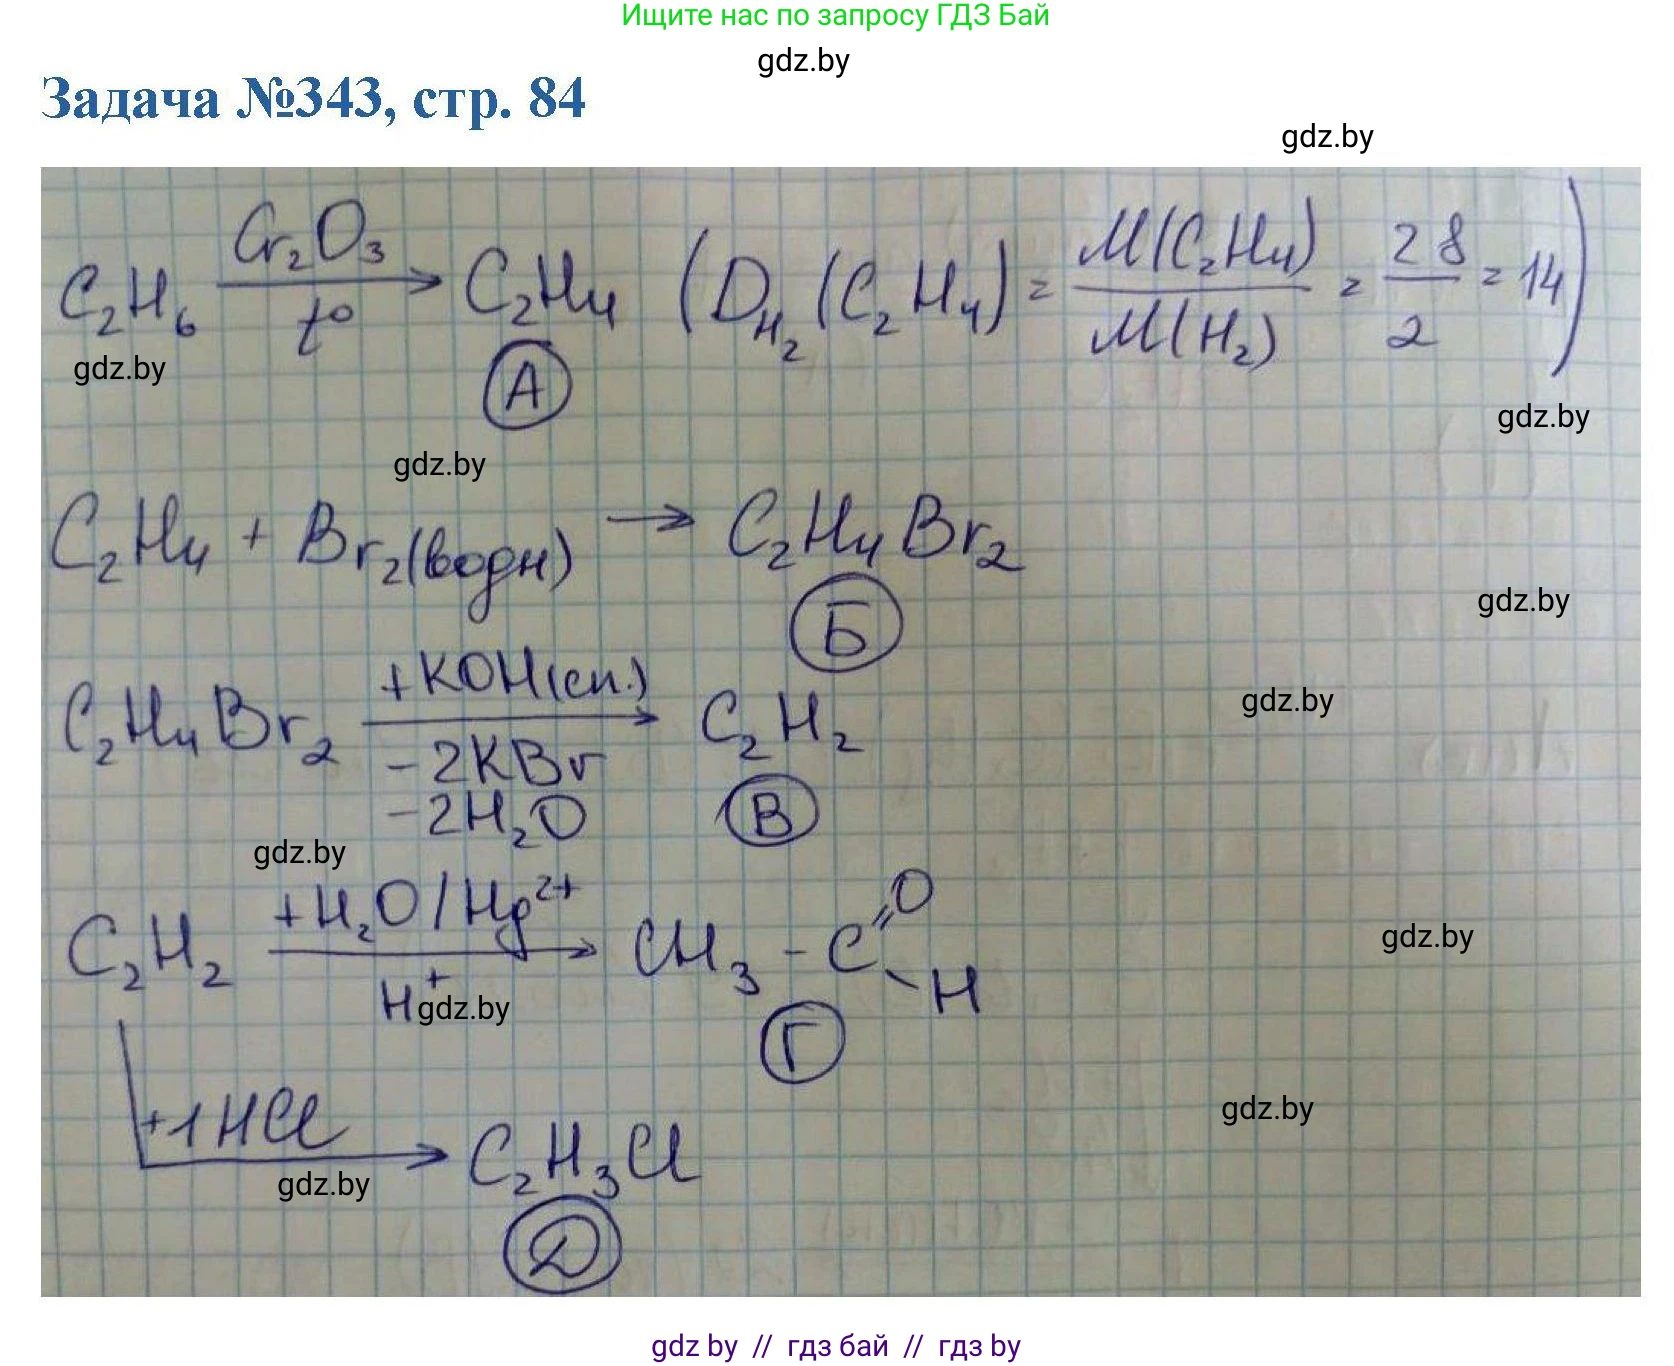 Ищите нас по запросу ГДЗ Бай
gdz.by
Задача №343, стр. 84
gdz.by
C₂H₆ Cr₂O₃ t° → C₂H₄ (D_H₂(C₂H₄) = M(C₂H₄) / M(H₂) = 28 / 2 = 14)
gdz.by
А
gdz.by
gdz.by
C₂H₄ + Br₂(водн) → C₂H₄Br₂
gdz.by
Б
C₂H₄Br₂ +KOH(сп.) → C₂H₂
gdz.by
-2KBr
-2H₂O
В
gdz.by
C₂H₂ +H₂O/Hg²⁺ H⁺ → CH₃-C=O -H
gdz.by
gdz.by
Г
gdz.by
+1HCl → C₂H₃Cl
gdz.by
Д
gdz by // гдз бай // гдз by